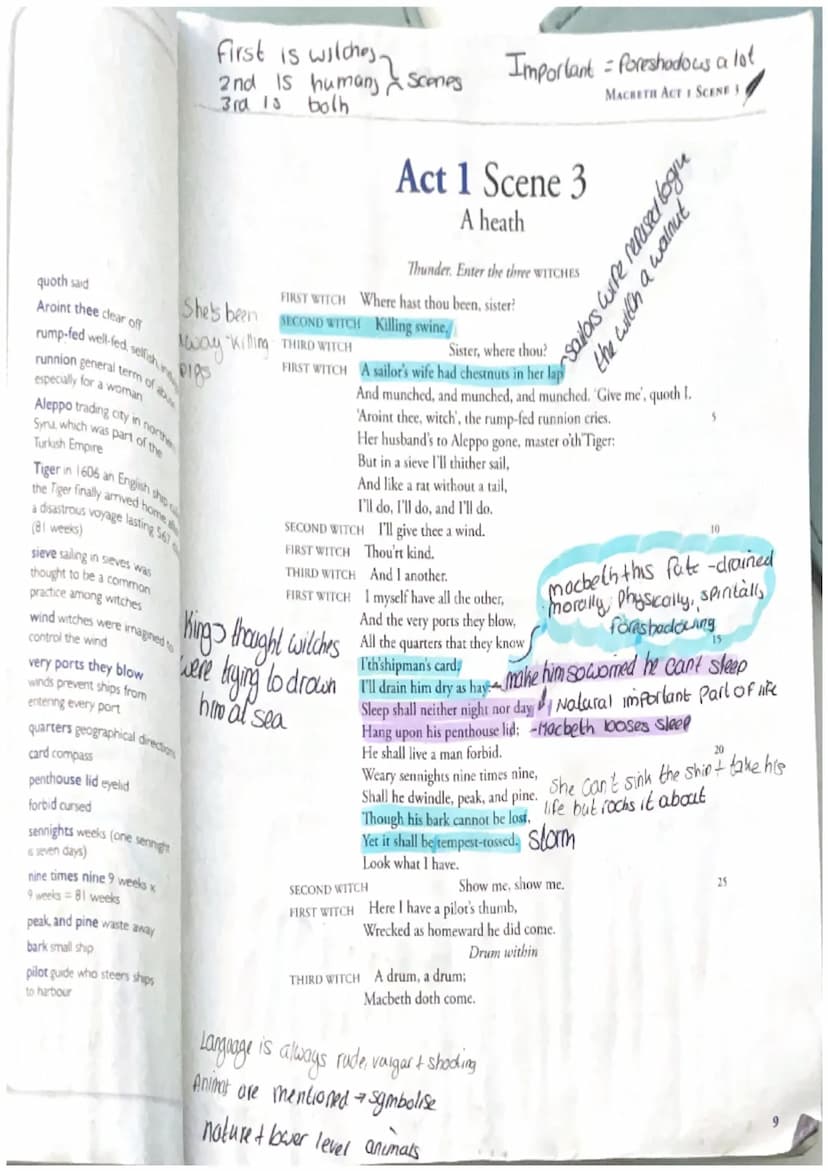 First is witches
2nd is humans } scenes
3rd is both
Important = foreshadows a lot
MACBETH ACT 1 SCENE 3
Act 1 Scene 3
A heath
sailors wife refused
the witch a walnut
Thunder. Enter the three WITCHES
quoth said
Aroint thee clear off
rump-fed well-fed, selfish
runnion general term of abuse
especially for a woman
Aleppo trading city in northern
Syria, which was part of the
Turkish Empire
Tiger in 1606 an English ship
the Tiger finally arrived home
a disastrous voyage lasting 567
(81 weeks)
sieve sailing in sieves was
thought to be a common
practice among witches
wind witches were imagined to
control the wind
very ports they blow
winds prevent ships from
entering every port
quarters geographical directions
card compass
penthouse lid eyelid
forbid cursed
sennights weeks (one sennight
is seven days)
nine times nine 9 weeks x
9 weeks = 81 weeks
peak, and pine waste away
bark small ship
pilot guide who steers ships
to harbour
She's been
away killing
pigs
FIRST WITCH Where hast thou been, sister?
SECOND WITCH Killing swine.
THIRD WITCH Sister, where thou?
FIRST WITCH A sailor's wife had chestnuts in her lap
And munched, and munched, and munched. 'Give me', quoth I.
'Aroint thee, witch', the rump-fed runnion cries. 5
Her husband's to Aleppo gone, master o'th'Tiger:
But in a sieve I'll thither sail,
And like a rat without a tail,
I'll do, I'll do, and I'll do.
SECOND WITCH I'll give thee a wind. 10
FIRST WITCH Thou'rt kind.
THIRD WITCH And I another.
FIRST WITCH I myself have all the other,
And the very ports they blow,
All the quarters that they know 15
I'th'shipman's card.
I'll drain him dry as hay:
Sleep shall neither night nor day
Hang upon his penthouse lid;
He shall live a man forbid. 20
Weary sennights nine times nine,
Shall he dwindle, peak, and pine.
Though his bark cannot be lost,
Yet it shall be tempest-tossed.
Look what I have.
SECOND WITCH Show me, show me. 25
FIRST WITCH Here I have a pilot's thumb,
Wrecked as homeward he did come.
Drum within
THIRD WITCH A drum, a drum;
Macbeth doth come.
macbeth this fate - drained
morally, physically, spiritally,
foreshadowing
make him so worried he can't sleep
Natural important part of life
- Macbeth looses sleep
King thought witches
were trying to drown
him at sea
She can't sink the ship + take his
life but rocks it about
Storm
Language is always rude, vulgar + shocking
Animals are mentioned → symbolise
nature + lower level animals
9